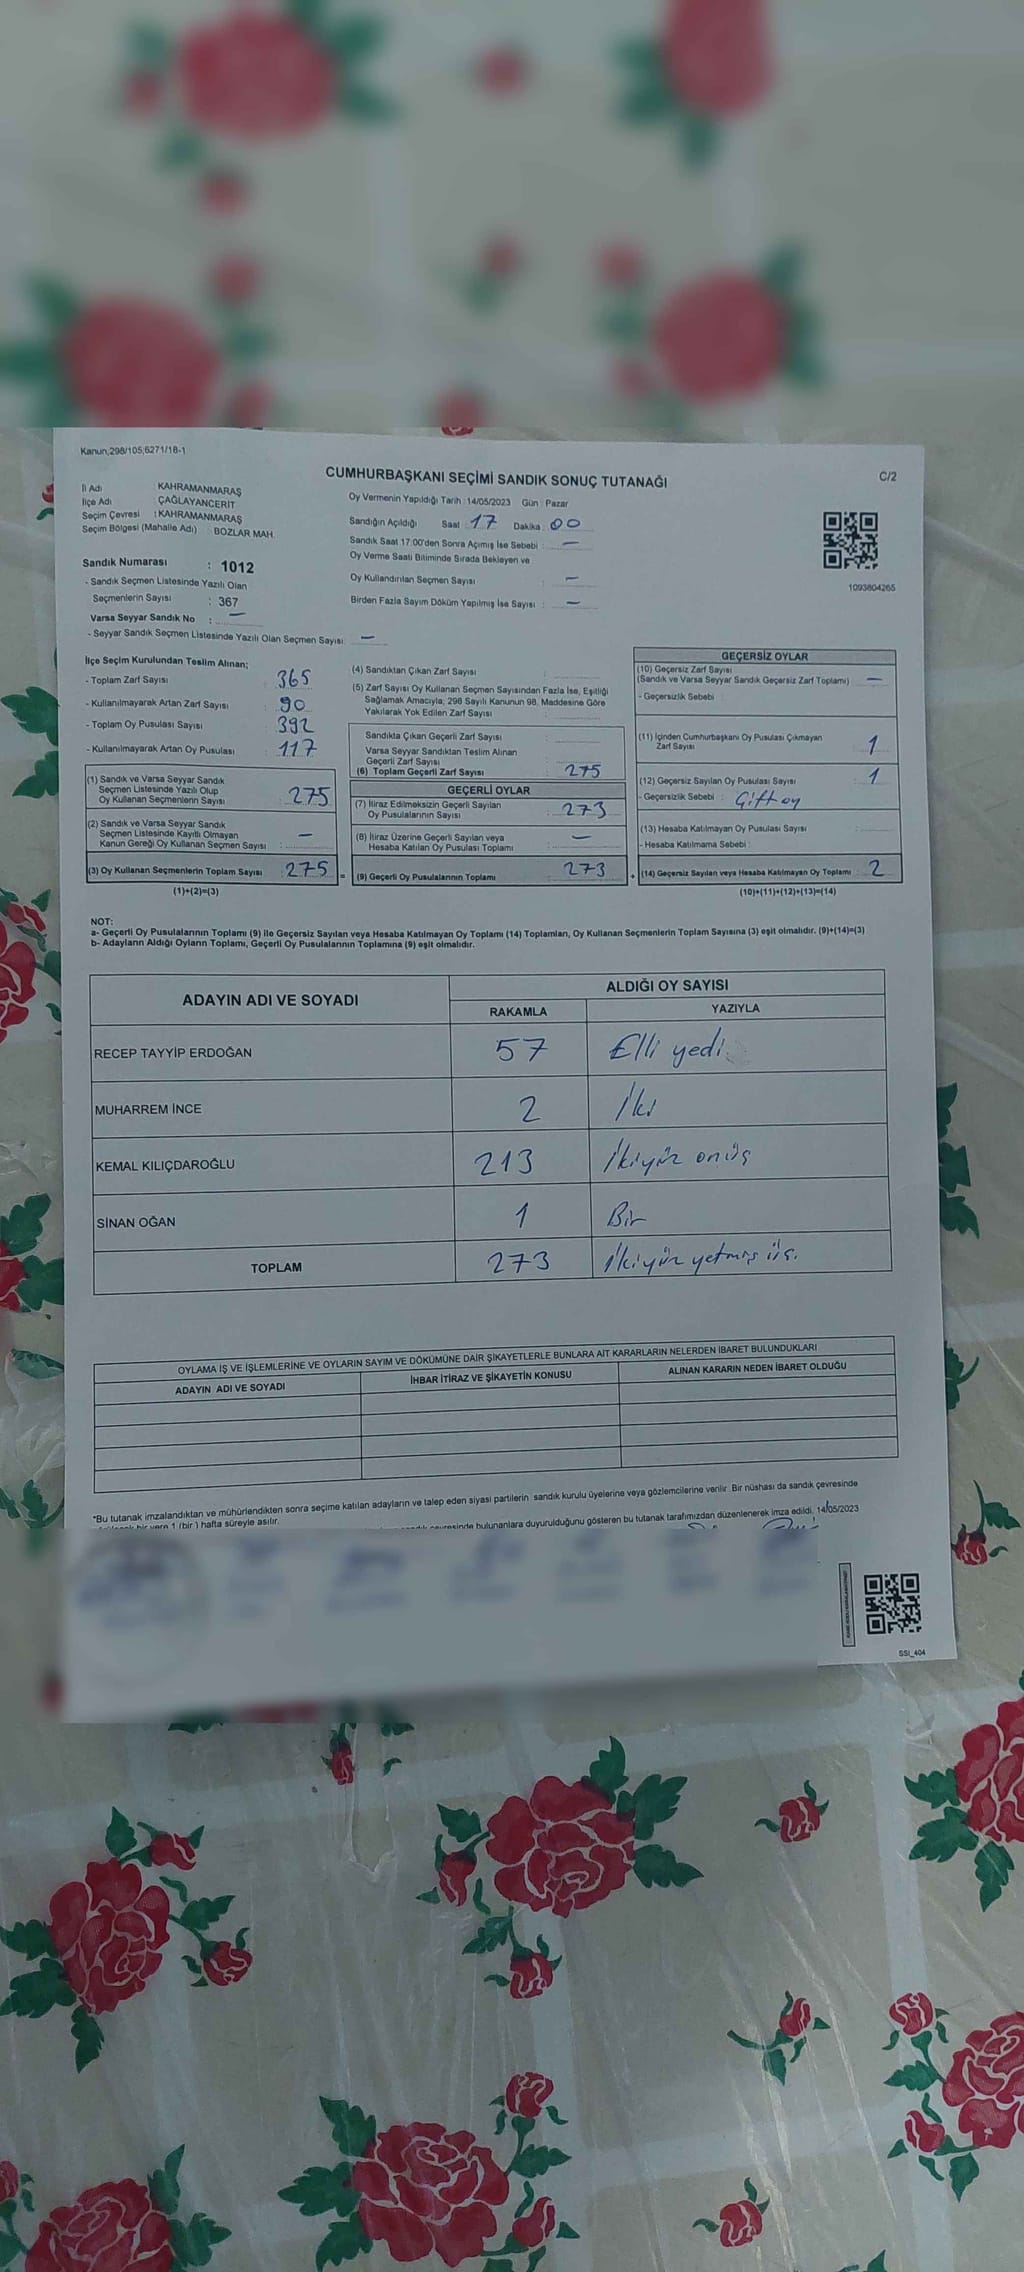 Kanun,298/105;6271/18-1
CUMHURBAŞKANI SEÇİMİ SANDIK SONUÇ TUTANAĞI
C/2
İl Adı KAHRAMANMARAŞ
İlçe Adı ÇAĞLAYANCERİT
Seçim Çevresi : KAHRAMANMARAŞ
Seçim Bölgesi (Mahalle Adı) : BOZLAR MAH.
Oy Vermenin Yapıldığı Tarih : 14/05/2023 Gün : Pazar
Sandığın Açıldığı Saat 17 Dakika 00
Sandık Saat 17:00'den Sonra Açımış İse Sebebi : —
Oy Verme Saati Bitiminde Sırada Bekleyen ve
Oy Kullandırılan Seçmen Sayısı : —
Birden Fazla Sayım Döküm Yapılmış İse Sayısı : —
1093804265
Sandık Numarası : 1012
- Sandık Seçmen Listesinde Yazılı Olan
Seçmenlerin Sayısı : 367
Varsa Seyyar Sandık No : —
- Seyyar Sandık Seçmen Listesinde Yazılı Olan Seçmen Sayısı: —
İlçe Seçim Kurulundan Teslim Alınan;
- Toplam Zarf Sayısı 365
- Kullanılmayarak Artan Zarf Sayısı : 90
- Toplam Oy Pusulası Sayısı : 392
- Kullanılmayarak Artan Oy Pusulası : 117
(1) Sandık ve Varsa Seyyar Sandık
Seçmen Listesinde Yazılı Olup
Oy Kullanan Seçmenlerin Sayısı : 275
(2) Sandık ve Varsa Seyyar Sandık
Seçmen Listesinde Kayıtlı Olmayan
Kanun Gereği Oy Kullanan Seçmen Sayısı : —
(3) Oy Kullanan Seçmenlerin Toplam Sayısı : 275 =
(1)+(2)=(3)
(4) Sandıktan Çıkan Zarf Sayısı
(5) Zarf Sayısı Oy Kullanan Seçmen Sayısından Fazla İse, Eşitliği
Sağlamak Amacıyla, 298 Sayılı Kanunun 98. Maddesine Göre
Yakılarak Yok Edilen Zarf Sayısı :
Sandıkta Çıkan Geçerli Zarf Sayısı
Varsa Seyyar Sandıktan Teslim Alınan
Geçerli Zarf Sayısı :
(6) Toplam Geçerli Zarf Sayısı : 275
GEÇERLİ OYLAR
(7) İtiraz Edilmeksizin Geçerli Sayılan
Oy Pusulalarının Sayısı : 273
(8) İtiraz Üzerine Geçerli Sayılan veya
Hesaba Katılan Oy Pusulası Toplamı : —
(9) Geçerli Oy Pusulalarının Toplamı : 273 +
GEÇERSİZ OYLAR
(10) Geçersiz Zarf Sayısı
(Sandık ve Varsa Seyyar Sandık Geçersiz Zarf Toplamı) —
- Geçersizlik Sebebi :
(11) İçinden Cumhurbaşkanı Oy Pusulası Çıkmayan
Zarf Sayısı : 1
(12) Geçersiz Sayılan Oy Pusulası Sayısı : 1
- Geçersizlik Sebebi : Çift oy
(13) Hesaba Katılmayan Oy Pusulası Sayısı :
- Hesaba Katılmama Sebebi :
(14) Geçersiz Sayılan veya Hesaba Katılmayan Oy Toplamı : 2
(10)+(11)+(12)+(13)=(14)
NOT:
a- Geçerli Oy Pusulalarının Toplamı (9) ile Geçersiz Sayılan veya Hesaba Katılmayan Oy Toplamı (14) Toplamları, Oy Kullanan Seçmenlerin Toplam Sayısına (3) eşit olmalıdır. (9)+(14)=(3)
b- Adayların Aldığı Oyların Toplamı, Geçerli Oy Pusulalarının Toplamına (9) eşit olmalıdır.
ADAYIN ADI VE SOYADI
ALDIĞI OY SAYISI
RAKAMLA YAZIYLA
RECEP TAYYİP ERDOĞAN 57 Elli yedi
MUHARREM İNCE 2 İki
KEMAL KILIÇDAROĞLU 213 İkiyüz onüç
SİNAN OĞAN 1 Bir
TOPLAM 273 İkiyüz yetmiş üç.
OYLAMA İŞ VE İŞLEMLERİNE VE OYLARIN SAYIM VE DÖKÜMÜNE DAİR ŞİKAYETLERLE BUNLARA AİT KARARLARIN NELERDEN İBARET BULUNDUKLARI
ADAYIN ADI VE SOYADI İHBAR İTİRAZ VE ŞİKAYETİN KONUSU ALINAN KARARIN NEDEN İBARET OLDUĞU
*Bu tutanak imzalandıktan ve mühürlendikten sonra seçime katılan adayların ve talep eden siyasi partilerin sandık kurulu üyelerine veya gözlemcilerine verilir. Bir nüshası da sandık çevresinde
bir yere 1 (bir) hafta süreyle asılır.
çevresinde bulunanlara duyurulduğunu gösteren bu tutanak tarafımızdan düzenlenerek imza edildi. 14/05/2023
SSI_404